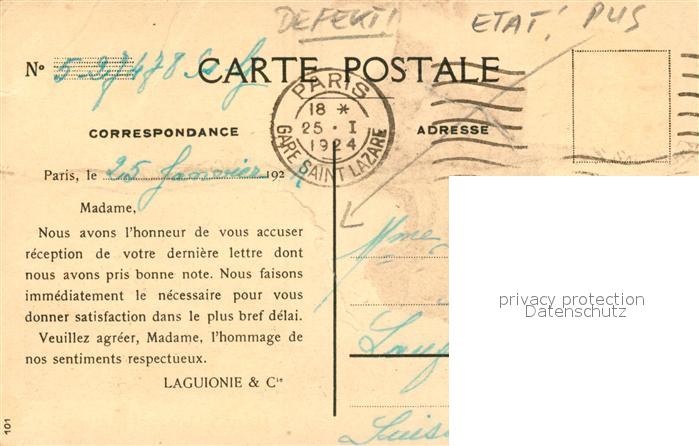 DEFEKT!
ETAT! PUS
Nº
CARTE POSTALE
PARIS
18 *
25 · I
1924
GARE SAINT LAZARE
CORRESPONDANCE
ADRESSE
Paris, le 25 Janvier 192
Madame,
Nous avons l'honneur de vous accuser
réception de votre dernière lettre dont
nous avons pris bonne note. Nous faisons
immédiatement le nécessaire pour vous
donner satisfaction dans le plus bref délai.
Veuillez agréer, Madame, l'hommage de
nos sentiments respectueux.
LAGUIONIE & Cie
101
Mme
privacy protection
Datenschutz